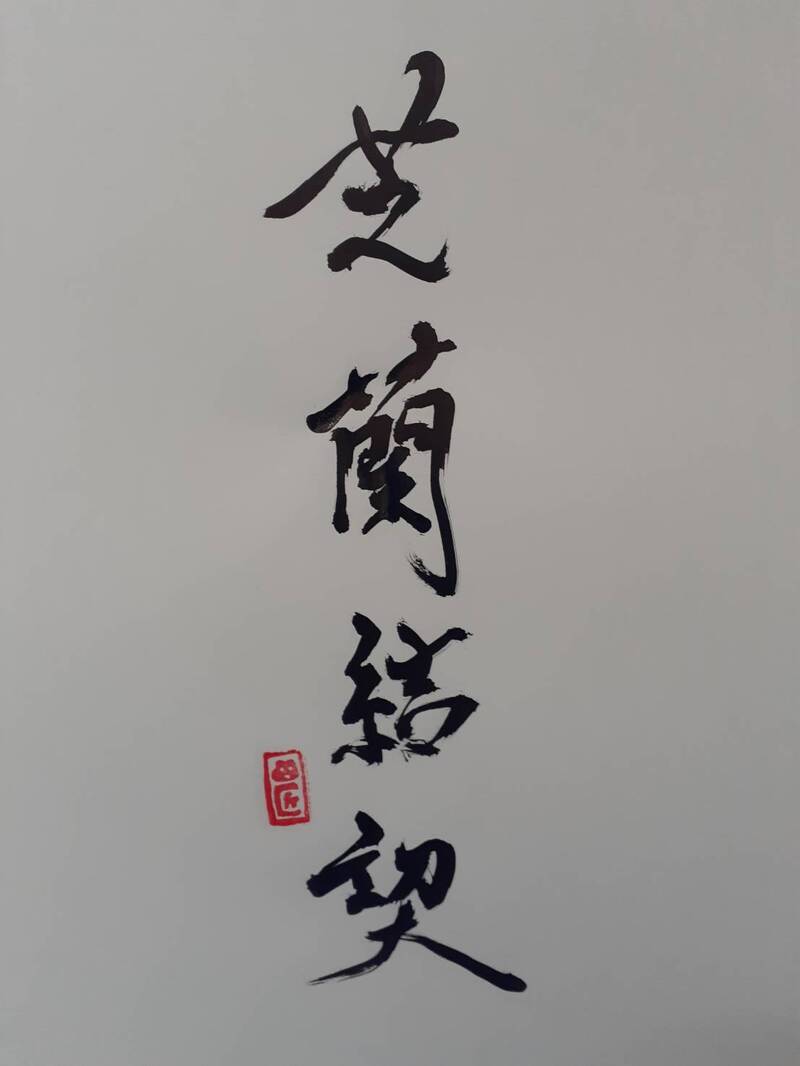 芝蘭結契